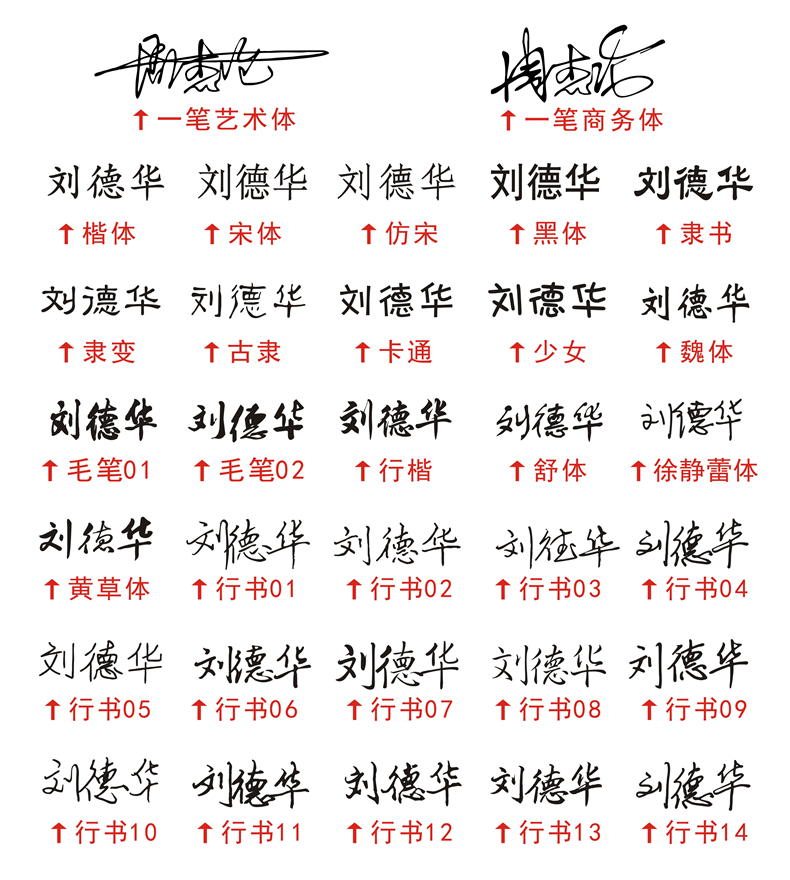 周杰伦 周杰伦
↑一笔艺术体 ↑一笔商务体
刘德华 刘德华 刘德华 刘德华 刘德华
↑楷体 ↑宋体 ↑仿宋 ↑黑体 ↑隶书
刘德华 刘德华 刘德华 刘德华 刘德华
↑隶变 ↑古隶 ↑卡通 ↑少女 ↑魏体
刘德华 刘德华 刘德华 刘德华 刘德华
↑毛笔01 ↑毛笔02 ↑行楷 ↑舒体 ↑徐静蕾体
刘德华 刘德华 刘德华 刘德华 刘德华
↑黄草体 ↑行书01 ↑行书02 ↑行书03 ↑行书04
刘德华 刘德华 刘德华 刘德华 刘德华
↑行书05 ↑行书06 ↑行书07 ↑行书08 ↑行书09
刘德华 刘德华 刘德华 刘德华 刘德华
↑行书10 ↑行书11 ↑行书12 ↑行书13 ↑行书14